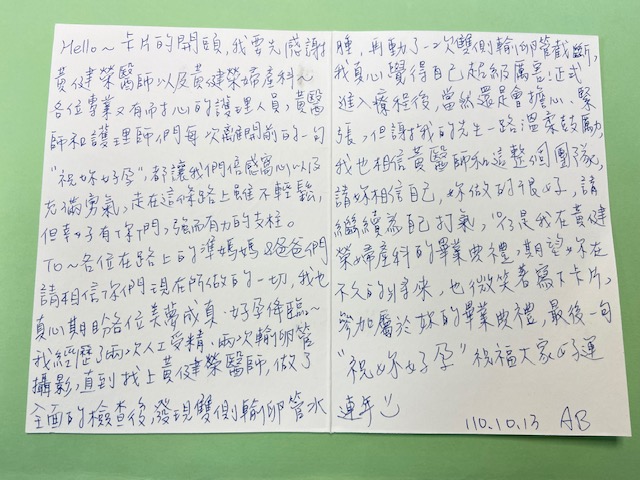 Hello~卡片的開頭,我要先感謝
黃健榮醫師以及黃健榮婦產科~
各位專業又有耐心的護理人員,黃醫
師和護理師們每次離開前的一句
"祝妳好孕",都讓我們倍感窩心以及
充滿勇氣,走在這條路上雖不輕鬆,
但幸好有你們,強而有力的支柱。
TO~各位在路上的準媽媽&爸爸們
請相信你們現在所做的一切,我也
真心期盼各位美夢成真.好孕降臨~
我經歷了兩次人工受精.兩次輸卵管
攝影,直到找上黃健榮醫師,做了
全面的檢查後,發現雙側輸卵管水
腫,再動了一次雙側輸卵管截斷,
我真心覺得自己超級厲害!正式
進入療程後,當然還是會擔心、緊
張,但謝謝我的先生一路溫柔鼓勵,
我也相信黃醫師和這整個團隊,
請妳相信自己,妳做的很好,請
繼續為自己打氣,10/13是我在黃健
榮婦產科的畢業典禮,期望妳在
不久的將來,也微笑著寫下卡片,
參加屬於妳的畢業典禮,最後一句
"祝妳好孕"祝福大家好運
連年
110.10.13 AB